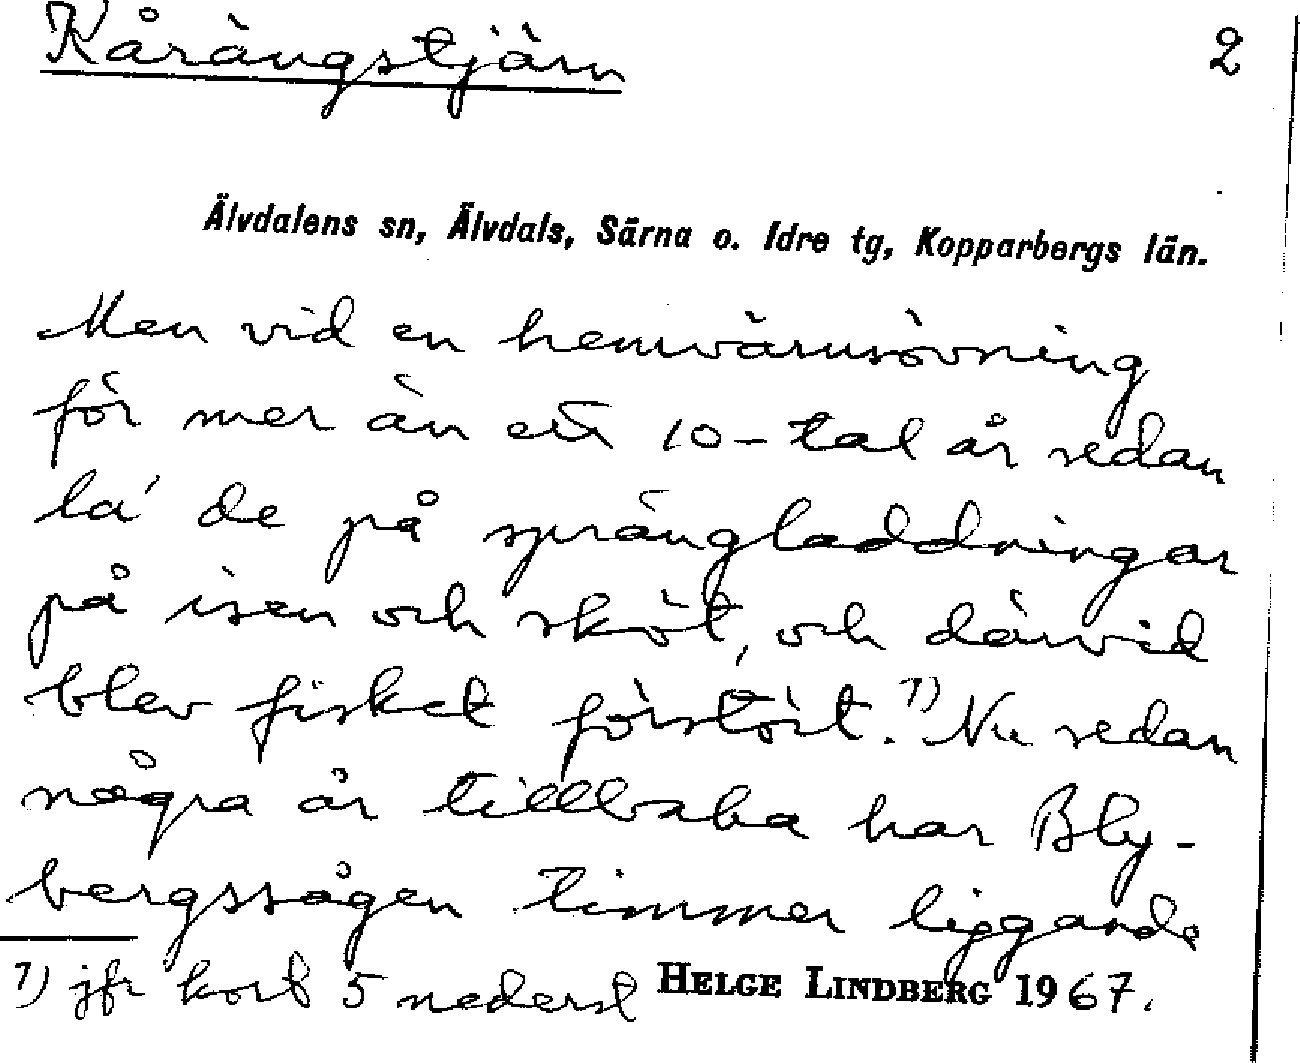 Kårängstjärn 2
Älvdalens sn, Älvdals, Särna o. Idre tg, Kopparbergs län.
Men vid en hemvärnsövning
för mer än ett 10-tal år sedan
la' de på sprängladdningar
på isen och sköt, och därvid
blev fisket förstört.1) Nu sedan
några år tillbaka har Bly-
bergssågen timmer liggande
1) jfr kort 5 nederst HELGE LINDBERG 1967.